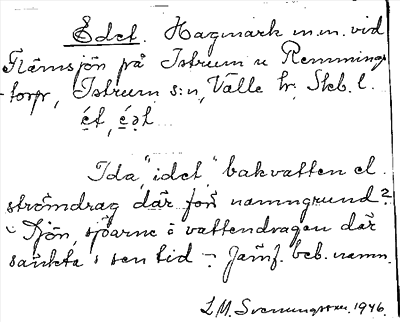 Edet. Hagmark m.m. vid
Flämsjön på Istrum o Remmings-
torp, Istrum s:n, Valle hr, Skb. l.
Ida, "idet" bakvatten el.
strömdrag där för namngrund?
Sjön, sjöarne o vattendragen där
sänkta i sen tid - Jämf. beb. namn.
L.M. Svenungsson. 1946.